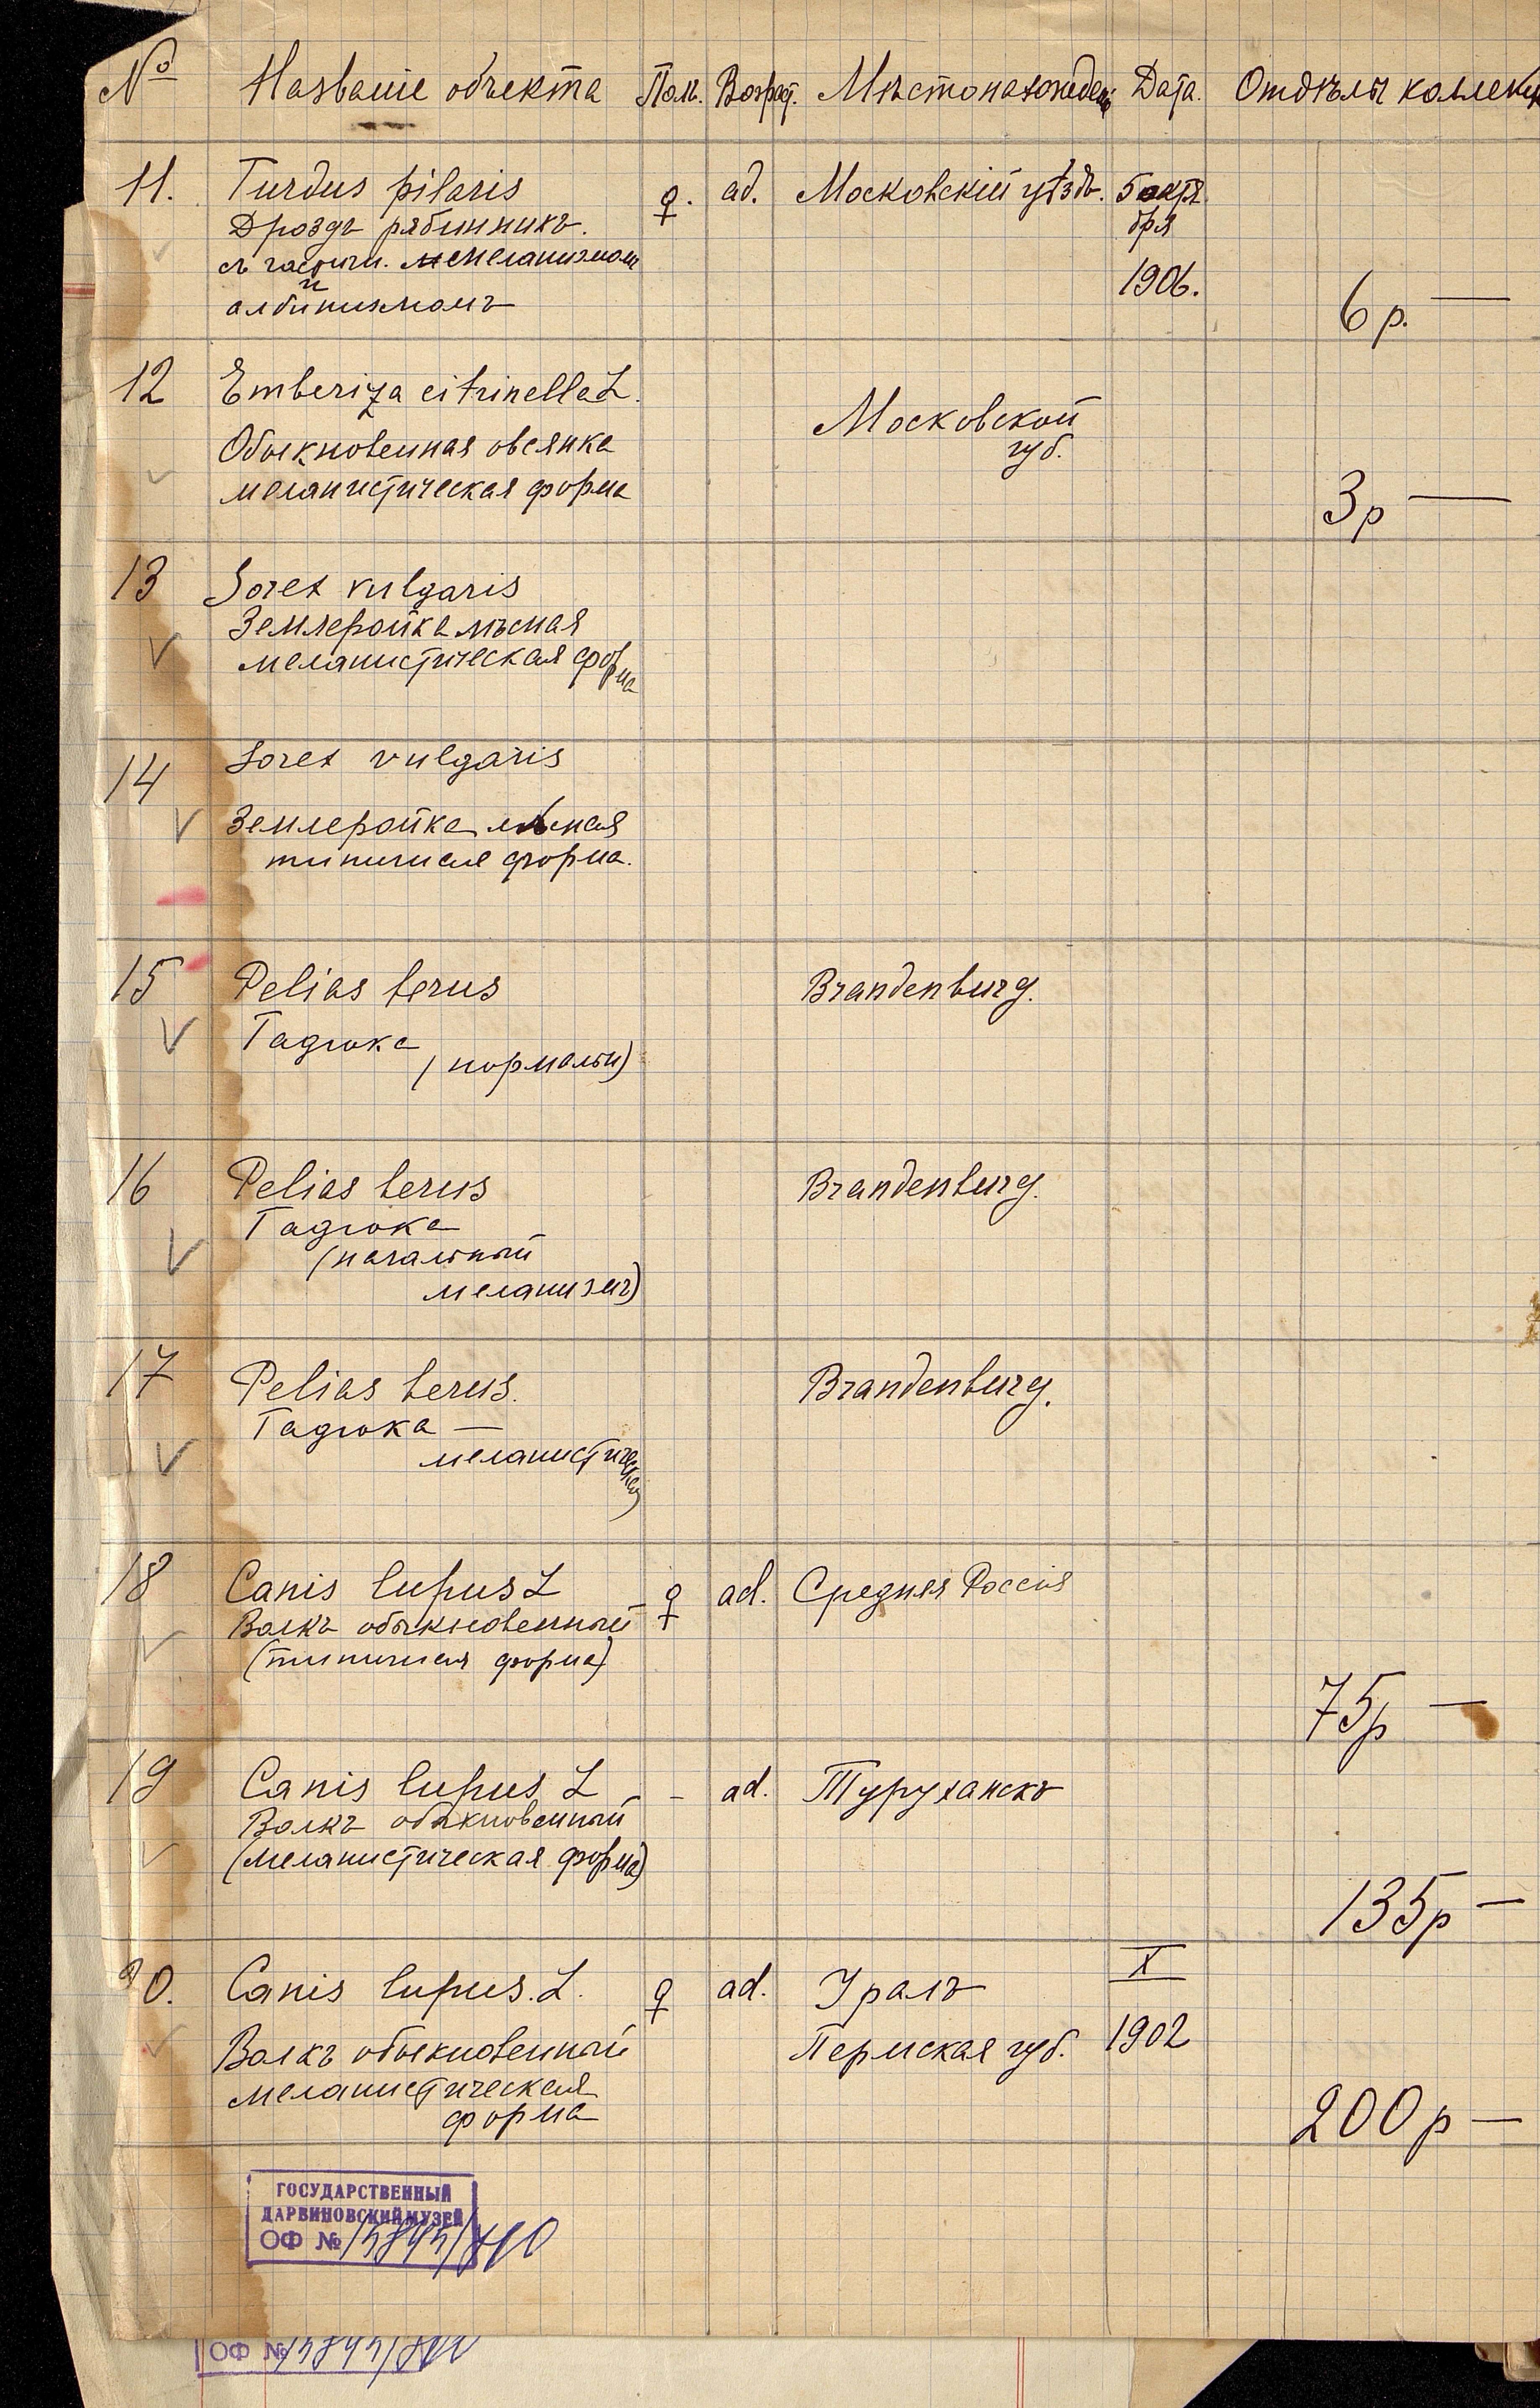 № Названіе объекта Полъ. Возраст. Мѣстонахожден. Дата. Отдѣлы коллекц
11. Turdus pilaris ♀. ad. Московскій уѣздъ. 5 октя
Дроздъ рябинникъ. бря
съ частичн. меланизмом
и 1906.
альбинизмомъ 6 р. —
12 Emberiza citrinella L.
Московской
Обыкновенная овсянка губ.
меланистическая форма 3 р —
13 Sorex vulgaris
Землеройка лѣсная
меланистическая форма
14 Sorex vulgaris
Землеройка лѣсная
типичная форма.
15 Pelias berus Brandenburg.
Гадюка
(нормальн)
16 Pelias berus Brandenburg.
Гадюка
(начальный
меланизмъ)
17 Pelias berus. Brandenburg.
Гадюка —
меланистическая
18 Canis lupus L ♀ ad. Средняя Россія
Волкъ обыкновенный
(типичная форма)
75 р —
19 Canis lupus L - - ad. Туруханскъ
Волкъ обыкновенный
(меланистическая форма)
135 р —
20. Canis lupus. L. ♀ ad. Уралъ X
Волкъ обыкновенный Пермская губ. 1902
меланистическая
форма
200 р —
ГОСУДАРСТВЕННЫЙ
ДАРВИНОВСКИЙ МУЗЕЙ
ОФ №
ОФ №